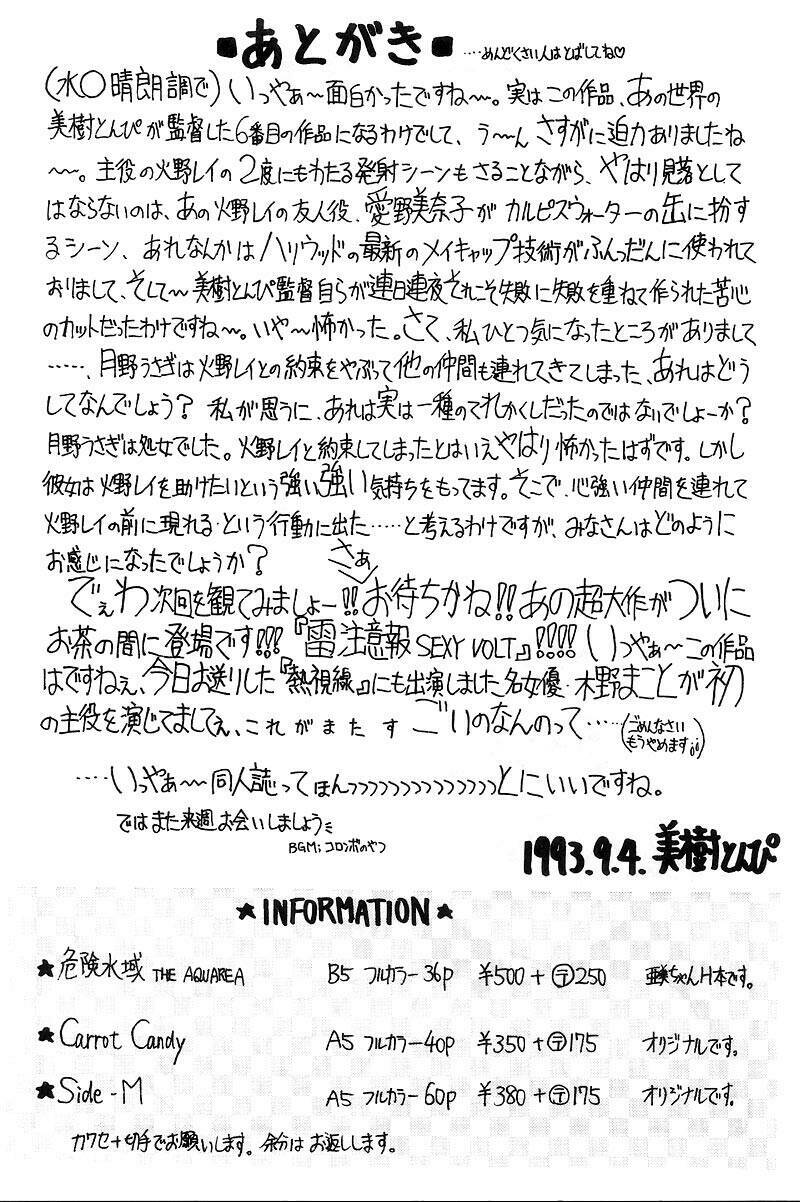 ■あとがき■ ‥‥めんどくさい人はとばしてね♡
(水〇晴朗調で)いっやぁ〜面白かったですね〜。実はこの作品、あの世界の
美樹とんぴが監督した6番目の作品になるわけでして、う〜ん さすがに迫力ありましたね
〜。主役の火野レイの2度にもわたる発射シーンもさることながら、やはり見落として
はならないのは、あの火野レイの友人役、愛野美奈子がカルピスウォーターの缶に扮す
るシーン、あれなんかはハリウッドの最新のメイキャップ技術がふんだんに使われて
おりまして、そして〜美樹とんぴ監督自らが連日連夜それこそ失敗に失敗を重ねて作られた苦心
のカットだったわけですね〜。いや〜怖かった。さて、私ひとつ気になったところがありまして
‥‥‥、月野うさぎは火野レイとの約束をやぶって他の仲間も連れてきてしまった、あれはどう
してなんでしょう? 私が思うに、あれは実は一種のてれかくしだったのではないでしょーか?
月野うさぎは処女でした。火野レイと約束してしまったとはいえやはり怖かったはずです。しかし
彼女は火野レイを助けたいという強い強い気持ちをもってます。そこで、心強い仲間を連れて
火野レイの前に現れる・という行動に出た‥‥‥と考えるわけですが、みなさんはどのように
お感じになったでしょうか?
さぁ
でぇわ次回を観てみましょー!!お待ちかね!!あの超大作がついに
お茶の間に登場です!!!『雷注意報SEXY VOLT』!!!!いっやぁ〜この作品
はですねぇ、今日お送りした『熱視線』にも出演しました名女優・木野まことが初
の主役を演じてましてぇ、これがまたすごいのなんのって‥‥‥(ごめんなさい
もうやめます;;)
‥‥いっやぁ〜同人誌ってほんっっっっっっっっっっっっっっっとにいいですね。
ではまた来週お会いしましょう
BGM;コロンボのやつ
1993.9.4.美樹とんぴ
★INFORMATION★
★危険水域 THE AQUAREA B5 フルカラー36p ¥500+〒250 亜美ちゃんH本です。
★Carrot Candy A5 フルカラー40p ¥350+〒175 オリジナルです。
★Side-M A5 フルカラー60p ¥380+〒175 オリジナルです。
カワセ+切手でお願いします。余分はお返しします。